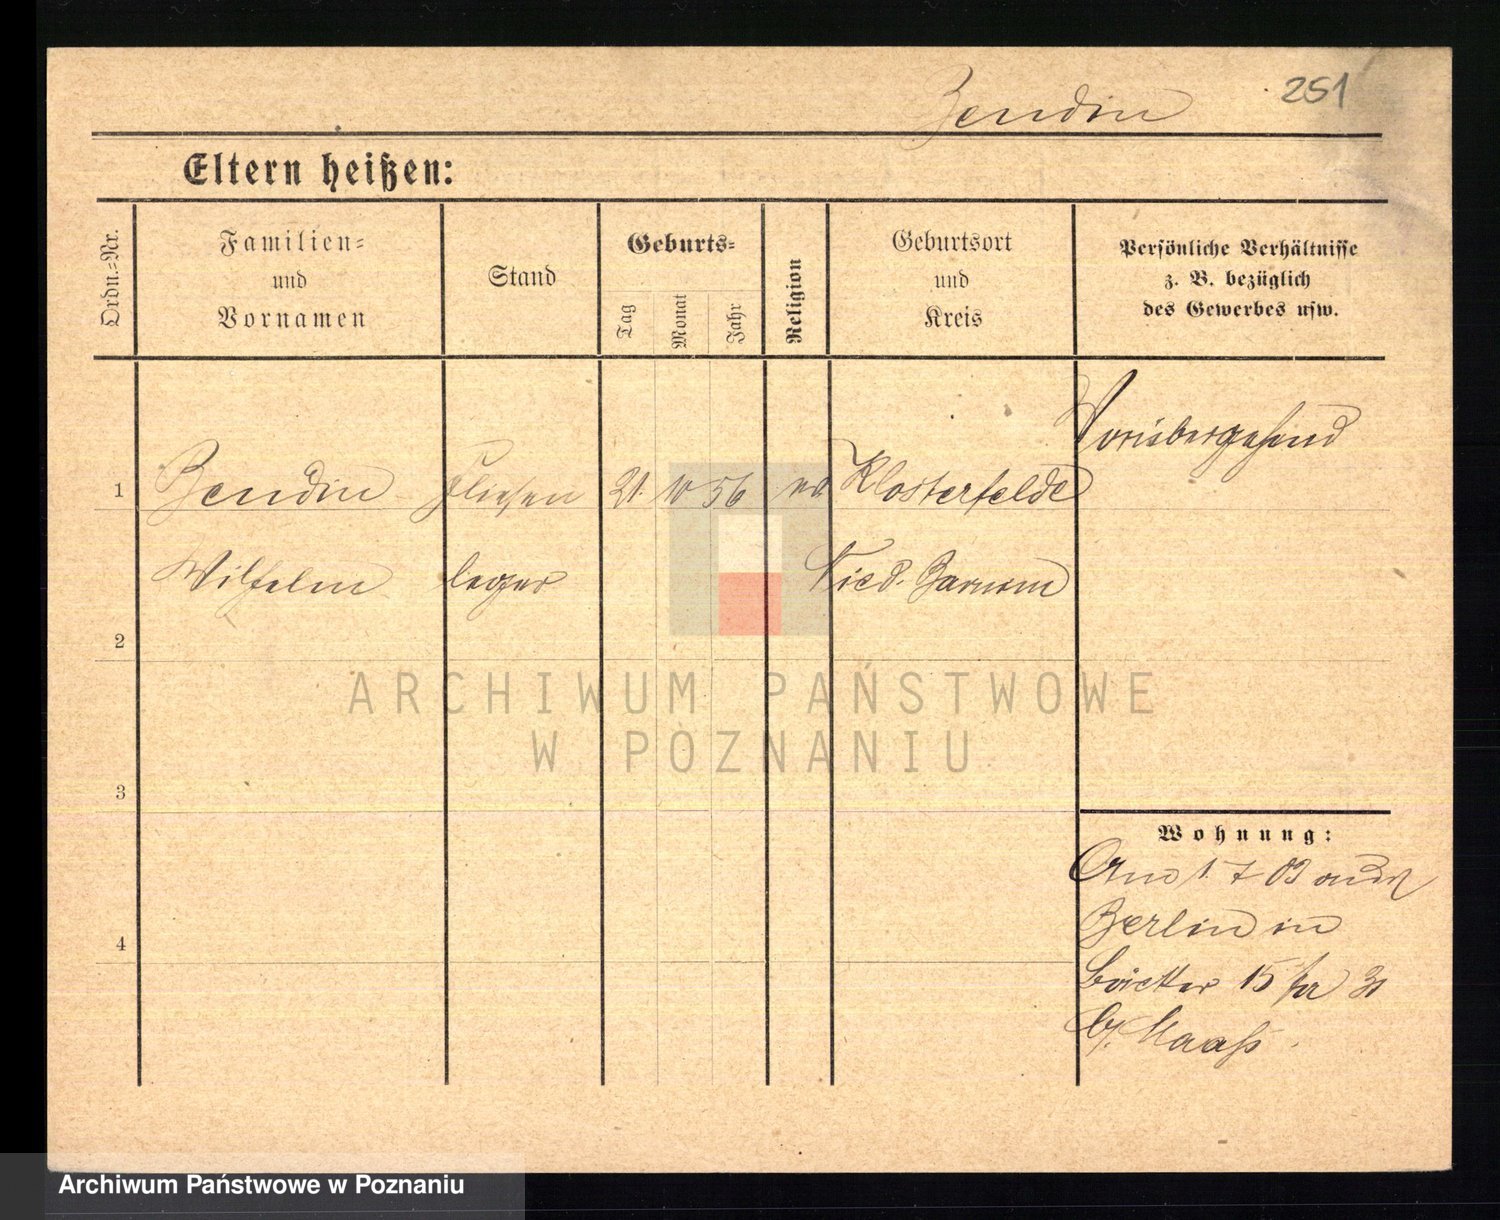 Zendin
251
Eltern heißen:
Ordn.=Nr.
Familien=
und
Vornamen
Stand
Geburts=
Tag
Monat
Jahr
Religion
Geburtsort
und
Kreis
Persönliche Verhältnisse
z. B. bezüglich
des Gewerbes usw.
1
Zendin Fliesen 21. 10 56 Klosterfelde
Wilhelm leger Nied. Barnim
2
3
4
Wohnung:
Am 1. 7 03
Berlin in
15
b/. Maaß
ARCHIWUM PAŃSTWOWE
W POZNANIU
Archiwum Państwowe w Poznaniu